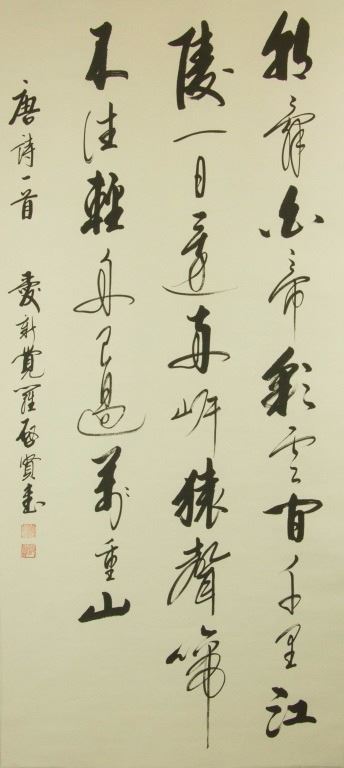 朝辭白帝彩雲間千里江
陵一日還兩岸猿聲啼
不住輕舟已過萬重山
唐詩一首 愛新覺羅啟賢書